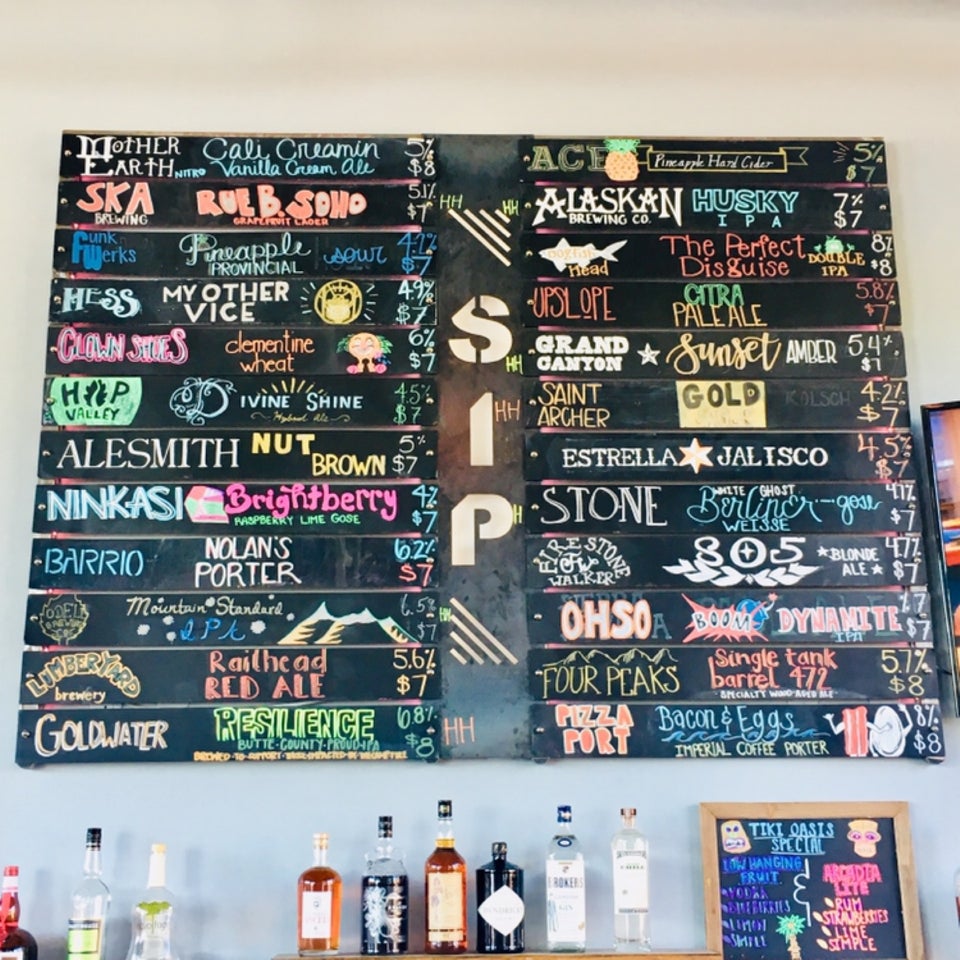 MOTHER EARTH NITRO Cali Creamin Vanilla Cream Ale 5% $8
SKA BREWING RUE B. SOHO GRAPEFRUIT LAGER 5.1% $7
Funk Werks Pineapple PROVINCIAL sour $7
HESS MY OTHER VICE 4.9% $7
CLOWN SHOES clementine wheat 6% $7
HOP VALLEY DIVINE SHINE 4.5% $7
ALESMITH NUT BROWN 5% $7
NINKASI Brightberry RASPBERRY LIME GOSE 4% $7
BARRIO NOLAN'S PORTER 6.2% $7
ODELL BREWING Mountain Standard IPA 6.5% $7
LUMBERYARD brewery Railhead RED ALE 5.6% $7
GOLDWATER RESILIENCE BUTTE COUNTY PROUD IPA 6.8% $8
HH
HH
SIP
HH
HH
H
HH
HH
ACE Pineapple Hard Cider 5% $7
ALASKAN BREWING CO. HUSKY IPA 7% $7
Dogfish Head The Perfect Disguise DOUBLE IPA 8% $8
UPSLOPE CITRA PALE ALE 5.8% $7
GRAND CANYON Sunset AMBER 5.4% $7
SAINT ARCHER GOLD KOLSCH 4.2% $7
ESTRELLA JALISCO 4.5% $7
STONE WHITE GHOST Berliner WEISSE gose $7
FIRESTONE WALKER 805 BLONDE ALE 4.7% $7
OHSO BOOM DYNAMITE IPA $7
FOUR PEAKS Single tank barrel 472 SPECIALTY WOOD AGED ALE 5.7% $8
PIZZA PORT Bacon & Eggs IMPERIAL COFFEE PORTER 8% $8
HENDRICK'S
BROKERS
GIN
TIKI OASIS
SPECIAL
LOW HANGING
FRUIT
VODKA
BLUEBERRIES
LEMON
SIMPLE
ARCADIA
LITE
RUM
STRAWBERRIES
LIME
SIMPLE